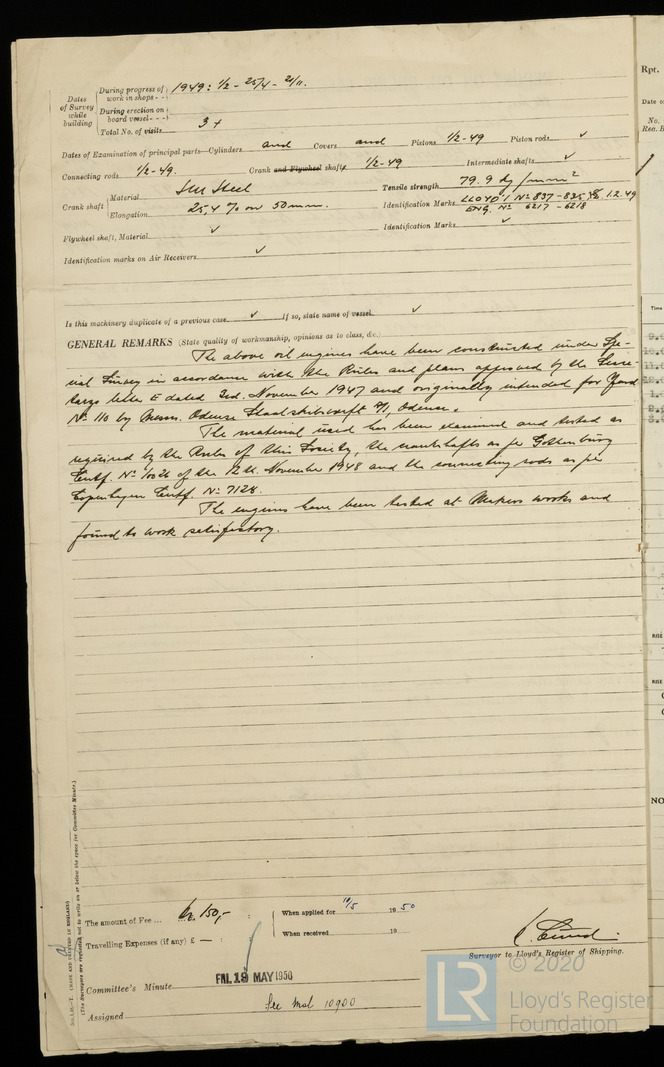 Dates of Survey while building
During progress of work in shops - - 1949: 1/2 - 25/4 - 21/11.
During erection on board vessel - - -
Total No. of visits 3 +
Dates of Examination of principal parts—Cylinders and Covers and Pistons 1/2-49 Piston rods ✓
Connecting rods 1/2-49. Crank and Flywheel shafts 1/2-49 Intermediate shafts ✓
Crank shaft Material SM Steel Tensile strength 79.9 kg/mm²
Elongation 25,4 % on 50 mm. Identification Marks LLOYD'S No 837-838 1.2.49
ENG. No 6217 - 6218
Flywheel shaft, Material ✓ Identification Marks ✓
Identification marks on Air Receivers ✓
Is this machinery duplicate of a previous case ✓ If so, state name of vessel ✓
GENERAL REMARKS (State quality of workmanship, opinions as to class, &c.)
The above oil engines have been constructed under Spe-
cial Survey in accordance with the Rules and plans approved by the Secre-
tarys letter E dated 3rd. November 1947 and originally intended for Yard
No 110 by Messrs. Odense Staalskibsværft A/S, Odense.
The material used has been examined and tested as
required by the Rules of this Society, the crankshafts as per Gothenburg
Certf. No of the 12th. November 1948 and the connecting rods as per
Copenhagen Certf. No 7128.
The engines have been tested at Makers works and
found to work satisfactory.
(The Surveyors are requested not to write on or below the space for Committee Minute.)
The amount of Fee ... Kr. 150,- : When applied for 10/5 1950
Travelling Expenses (if any) £ — : : When received 19
Surveyor to Lloyd's Register of Shipping.
Committee's Minute FRI. 19 MAY 1950
Assigned See Mal 10900
© 2020
LR
Lloyd's Register
Foundation
Rpt.
Date of
No.
Time
RISE
RISE
NO